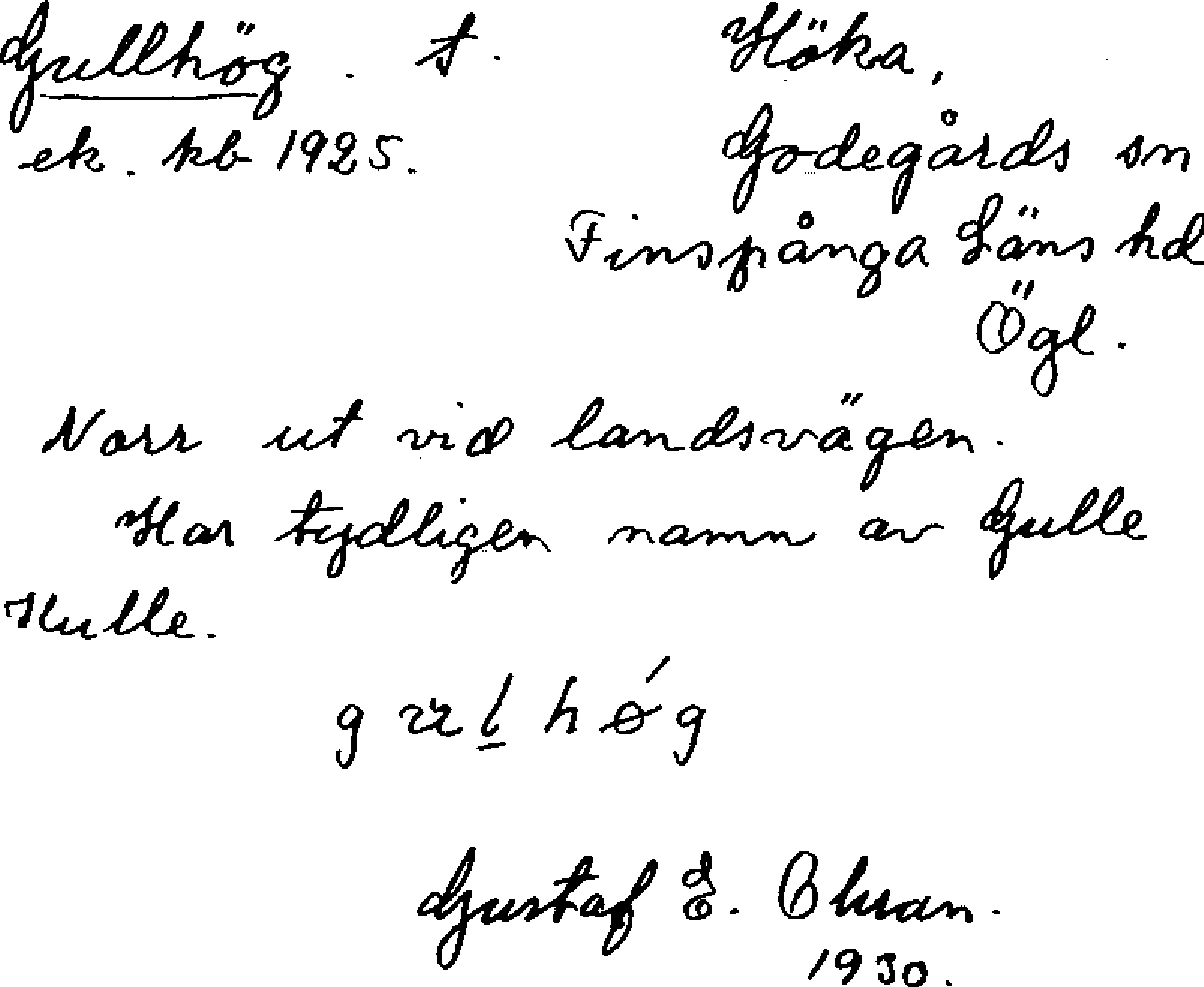 Gullhög. t. Höka,
ek. kb 1925. Godegårds sn
Finspånga Läns hd
Ögl.
Norr ut vid landsvägen.
Har tydligen namn av Gulle
Kulle.
Gustaf E.
1930.